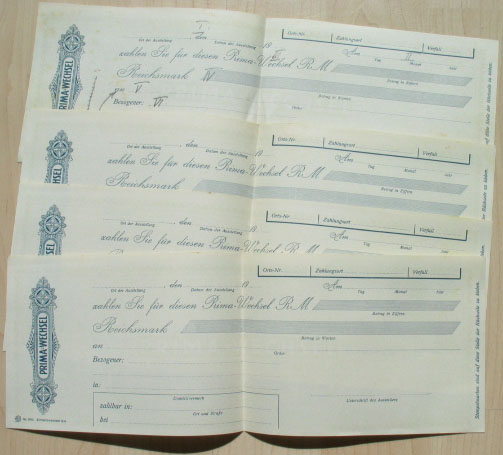 I
Orts-Nr. Zahlungsort Verfall
Ort der Ausstellung Datum der Ausstellung 19
Am
Tag Monat Jahr
zahlen Sie für diesen Prima-Wechsel RM
Betrag in Ziffern
Reichsmark IV
an V
Order
Bezogener: VI
PRIMA-WECHSEL
Orts-Nr. Zahlungsort Verfall
, den 19
Ort der Ausstellung Datum der Ausstellung
Am
Tag Monat Jahr
zahlen Sie für diesen Prima-Wechsel RM
Betrag in Ziffern
Reichsmark
PRIMA-WECHSEL
Orts-Nr. Zahlungsort Verfall
, den 19
Ort der Ausstellung Datum der Ausstellung
Am
Tag Monat Jahr
zahlen Sie für diesen Prima-Wechsel RM
WECHSEL
Orts-Nr. Zahlungsort Verfall
, den 19
Ort der Ausstellung Datum der Ausstellung
Am
Tag Monat Jahr
zahlen Sie für diesen Prima-Wechsel RM
Betrag in Ziffern
Reichsmark
Betrag in Worten
an
Order
Bezogener:
in:
zahlbar in:
Ort und Straße
bei
Unterschrift des Ausstellers
PRIMA-WECHSEL
Stempelmarken sind auf diese Seite der Rückseite zu kleben.